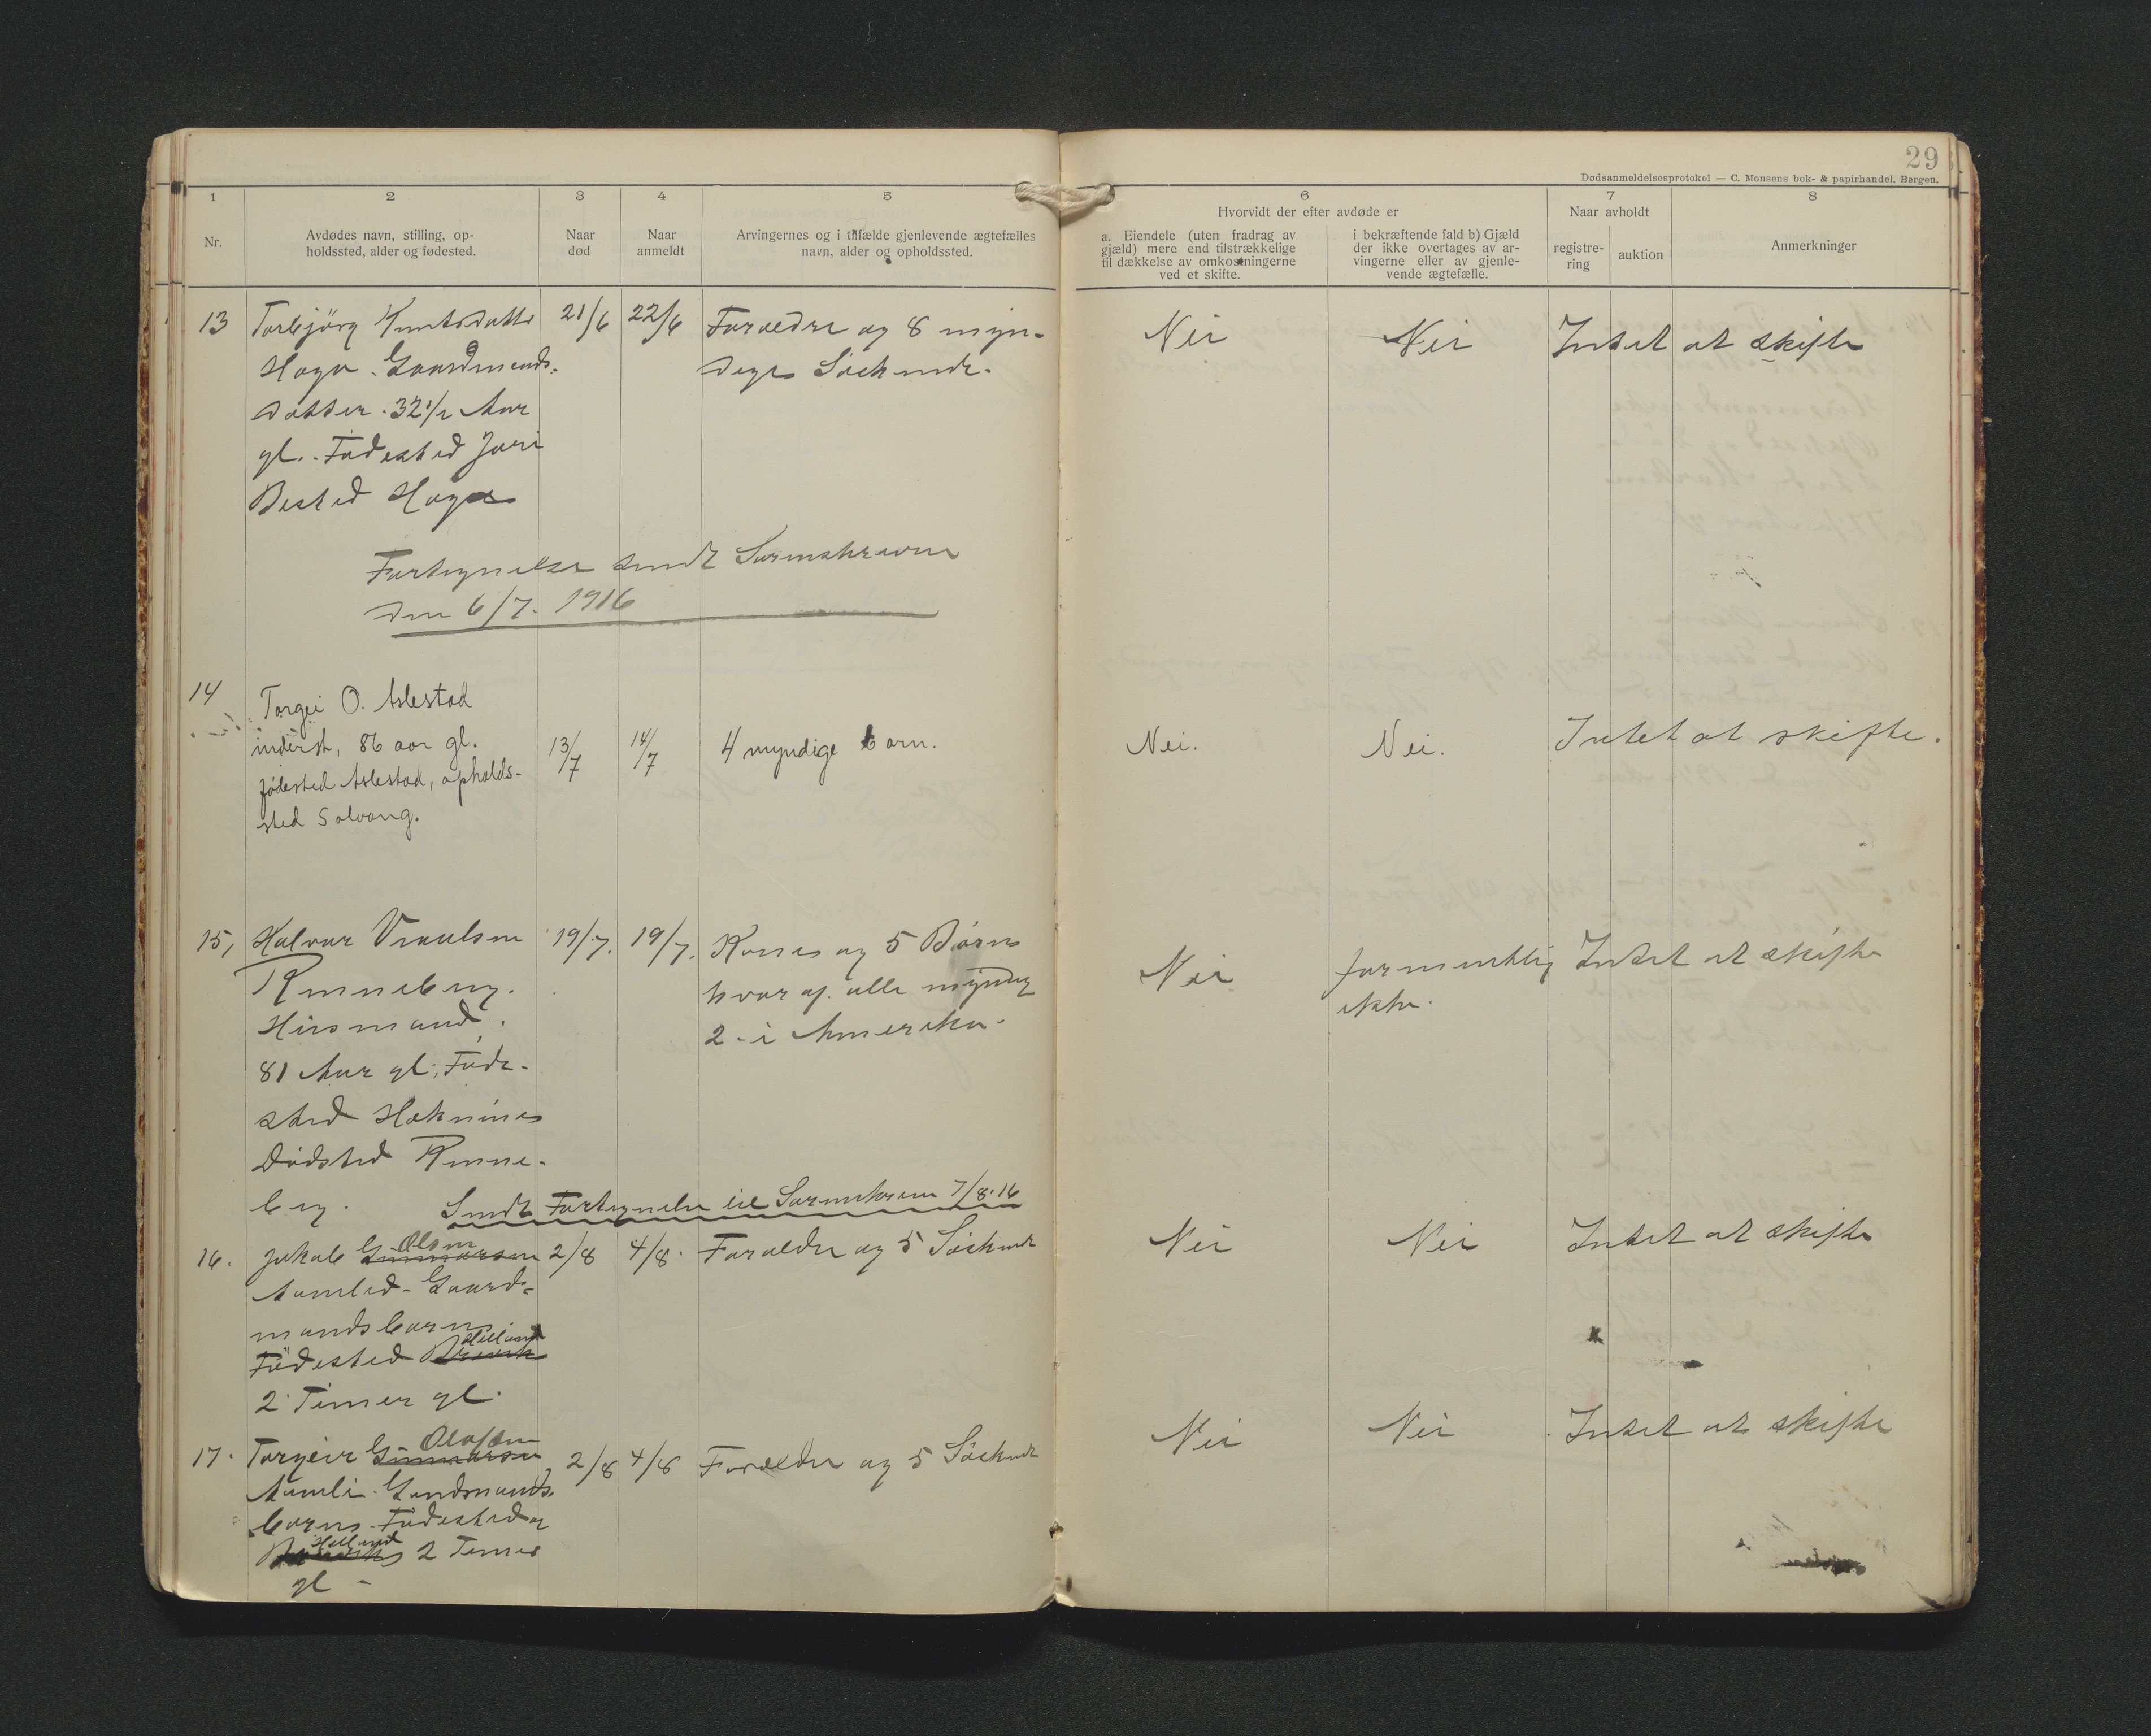 29
Dødsanmeldelsesprotokol — C. Monsens bok- & papirhandel, Bergen.
1
2
3
4
5
6
7
8
Nr.
Avdødes navn, stilling, op-
holdssted, alder og fødested.
Naar
død
Naar
anmeldt
Arvingernes og i tilfælde gjenlevende ægtefælles
navn, alder og opholdssted.
Hvorvidt der efter avdøde er
a. Eiendele (uten fradrag av
gjæld) mere end tilstrækkelige
til dækkelse av omkostningerne
ved et skifte.
i bekræftende fald b) Gjæld
der ikke overtages av ar-
vingerne eller av gjenle-
vende ægtefælle.
Naar avholdt
registre-
ring
auktion
Anmerkninger
13
Torbjörg Knutsdatter
Haga. Gaardmands-
datter. 32 1/2 Aar
gl. Fødested
Bosted Haga
21/6
22/6
Forældre og 8 myn-
dige Söskende.
Nei
Nei
Intet at skifte
Fortegnelse sendt Sorenskriveren
den 6/7. 1916
14
Torgei O. Aslestad
inderst, 86 aar gl.
fødested Aslestad, opholds-
sted Solvang.
13/7
14/7
4 myndige barn.
Nei.
Nei.
Intet at skifte.
15,
Halvor Vraalsen
Renneberg.
Husmand.
81 Aar gl. Føde-
sted
Dødsted Renne-
berg.
19/7.
19/7.
Kone og 5 Børn
hvor af alle myndig
2 i Amerika.
Nei
formentlig
ikke.
Intet at skifte
Sendt Fortegnelse til Sorenskriveren 7/8.16
16.
Olsen
Jakob Gunnarsen
Aamlid. Gaard-
mandsbarn.
Helland
Födested
2 Timer gl.
2/8
4/8.
Forældre og 5 Söskende
Nei
Nei
Intet at skifte
17.
Olafsen
Torgeir Gunnarsen
Aamli. Gardmands-
barn. Födested
Helland
2 Timer
gl -
2/8
4/8
Forældre og 5 Söskende
Nei
Nei
Intet at skifte